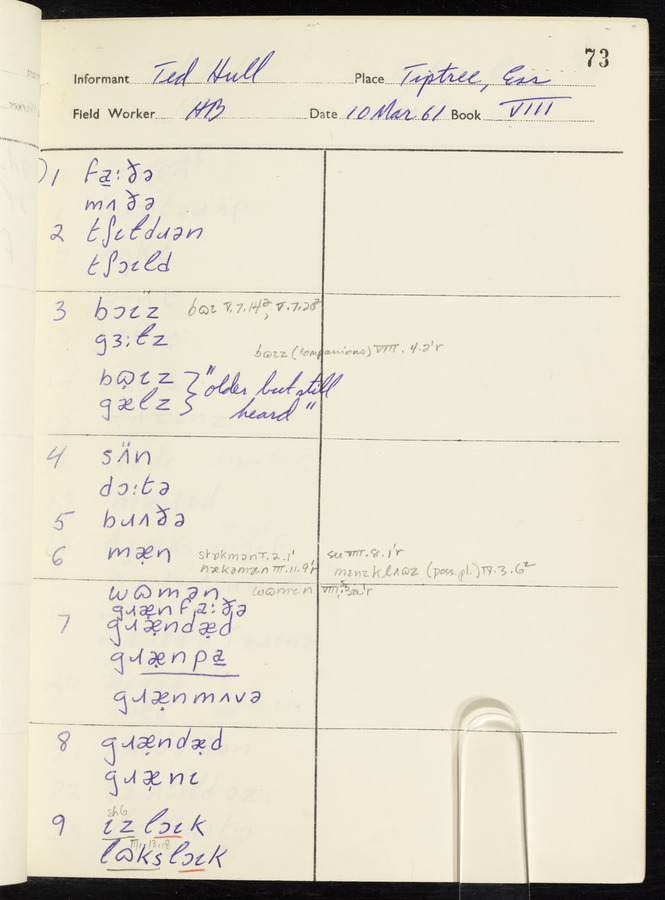 73
Informant Ted Hull Place Tiptree, Ess
Field Worker HB Date 10 Mar 61 Book VIII
1 fa̠ːðə
mʌðə
2 tʃɪɫdɹən
tʃɔɪɫd
3 bɔɪz bɷɪ V.7.14², V.7.20²
gɜːɫz
bɷɪz (companions) VIII.4.2'r
bɷ̣ɪz } "older but still
gæɫz } heard"
4 sʌ̈n
dɔːtə
5 bɹʌðə
6 mæ̣n stɒkmən I.2.1' see VIII.8.1'r
mɛnz klɑɷz (poss. pl.) IV.3.6²
wɷmən wɷmɪn
gɹæ̣nfa̠ːðə
7 gɹæ̣ndæ̣d
gɹæ̣npa̠
gɹæ̣nmʌvə
8 gɹæ̣ndæ̣d
gɹæ̣nɪ
sh6
9 ɪz lɔɪk
III.13.18
lɷks lɔɪk